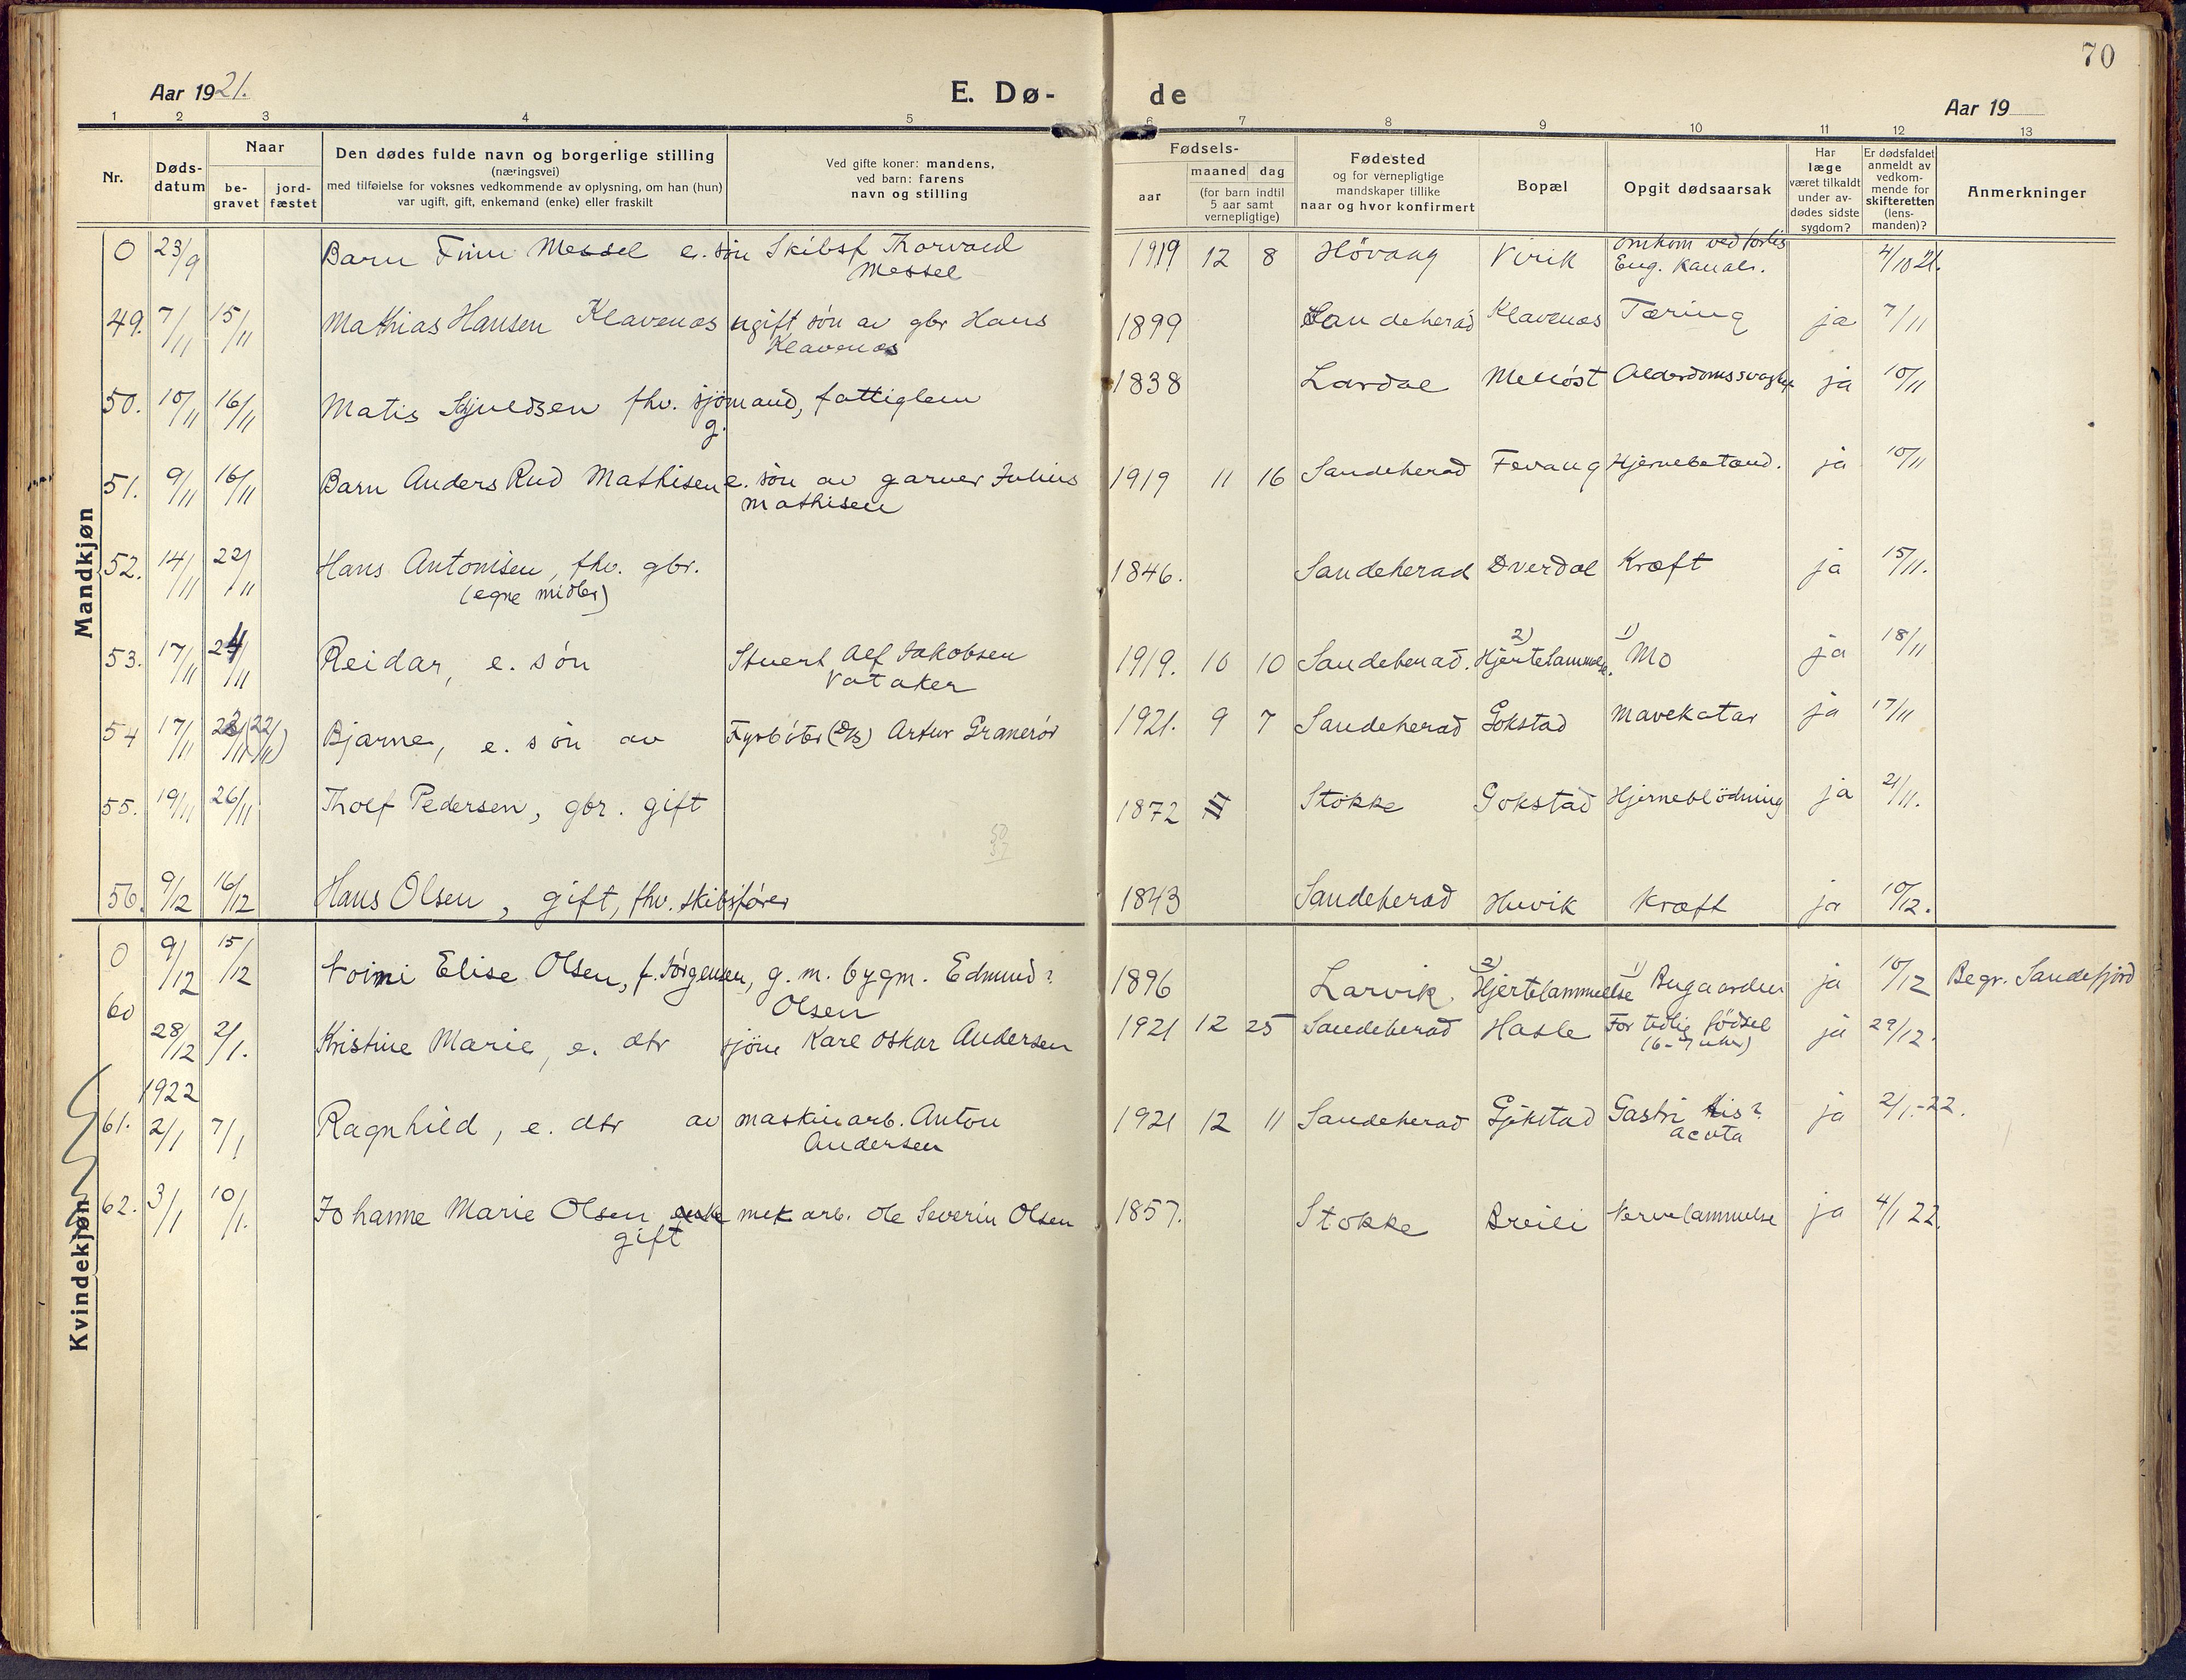 70
Aar 1921.
E. Dø-
de
Aar 19
1 2 3 4 5 6 7 8 9 10 11 12 13
Nr.
Døds-
datum
Naar
be-
gravet
jord-
fæstet
Den dødes fulde navn og borgerlige stilling
(næringsvei)
med tilføielse for voksnes vedkommende av oplysning, om han (hun)
var ugift, gift, enkemand (enke) eller fraskilt
Ved gifte koner: mandens,
ved barn: farens
navn og stilling
Fødsels-
aar
maaned dag
(for barn indtil
5 aar samt
vernepligtige)
Fødested
og for vernepligtige
mandskaper tillike
naar og hvor konfirmert
Bopæl
Opgit dødsaarsak
Har
læge
været tilkaldt
under av-
dødes sidste
sygdom?
Er dødsfaldet
anmeldt av
vedkom-
mende for
skifteretten
(lens-
manden)?
Anmerkninger
Mandkjøn
0 23/9 Barn Finn Messel e. søn Skibsf Thorvald
Messel
1919 12 8 Høvaag Virik omkom ved forlis
Eng. Kanal. 4/10 21.
49. 7/11 15/11 Mathias Hansen Klavenæs ugift søn av gbr Hans
Klavenæs
1899 Sandeherad Klavenæs Tæring ja 7/11
50. 10/11 16/11 Matis fhv. sjømand, fattiglem
g.
1838 Lardal Melløst ja 10/11
51. 9/11 16/11 Barn Anders Rud Mathisen e. søn av garver Julius
Mathisen
1919 11 16 Sandeherad Fevang Hjernebetænd. ja 10/11
52. 14/11 22/11 Hans Antonisen, fhv. gbr.
(egne midler)
1846. Sandeherad Dverdal Kræft ja 15/11.
53. 17/11 24/11 Reidar, e. søn Stuert Alf Jakobsen
Vataker
1919. 10 10 Sandeherad. 2) Hjertelammelse. 1) Mo ja 18/11
54 17/11 22/11 (22/11) Bjarne, e. søn av Fyrbøter (D/S) Artur Granerød
1921. 9 7 Sandeherad Gokstad Mavekatar ja 17/11
55. 19/11 26/11 Tholf Pedersen, gbr. gift
1872 Stokke Gokstad Hjerneblødning ja 21/11.
50
37
56. 9/12 16/12 Hans Olsen, gift, fhv. skibsfører
1843 Sandeherad Huvik Kræft ja 10/12.
Kvindekjøn
0 9/12 15/12 Noimi Elise Olsen, f. Jørgensen, g. m. bygm. Edmund?
Olsen
1896 Larvik. 2) Hjertelammelse 1) Bugaarden ja 10/12 Begr. Sandefjord
60 28/12 2/1. Kristine Marie, e. dtr sjøm Karl Oskar Andersen
1921 12 25 Sandeherad Hasle For tidlig fødsel
(6-7 uker) ja 29/12.
1922
61. 2/1 7/1 Ragnhild, e. dtr av maskinarb. Anton
Andersen
1921 12 11 Sandeherad Gjøkstad Gastri tis?
acuta ja 2/1.-22.
62. 3/1 10/1. Johanne Marie Olsen enke mek arb. Ole Severin Olsen
gift
1857. Stokke Breili Nervelammelse ja 4/1 22.